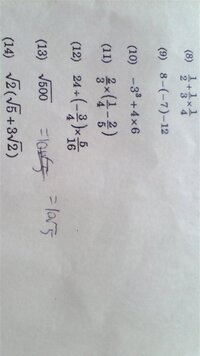 (8) 1/2 + 1/3 × 1/4
(9) 8－(－7)－12
(10) －3³＋4×6
(11) 2/3 × (1/4 － 2/5)
(12) 24÷(－3/4)×5/16
(13) √500 = 10√5
(14) √2(√5＋3√2)